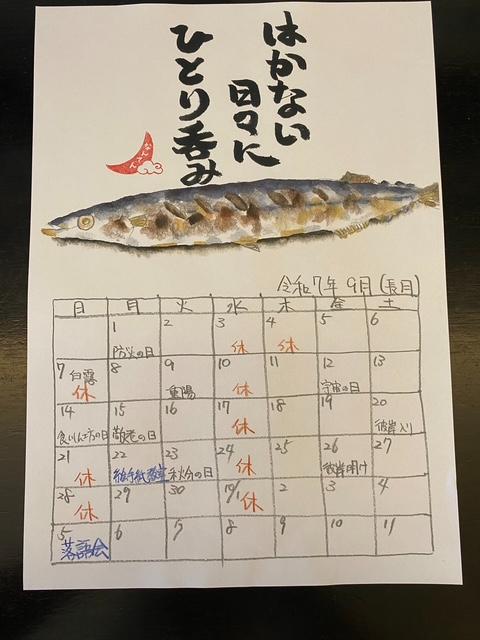 はかない
日々に
ひとり呑み
なんてん
令和7年 9月(長月)
日 月 火 水 木 金 土
1 2 3 4 5 6
防火の日 休 休
7 白露 8 9 10 11 12 13
休 重陽 休 宇宙の日
14 15 16 17 18 19 20
食いしん坊の日 敬老の日 休 彼岸入り
21 22 23 24 25 26 27
休 絵手紙教室 秋分の日 休 彼岸明け
28 29 30 10/1 2 3 4
休 休
5 6 7 8 9 10 11
落語会